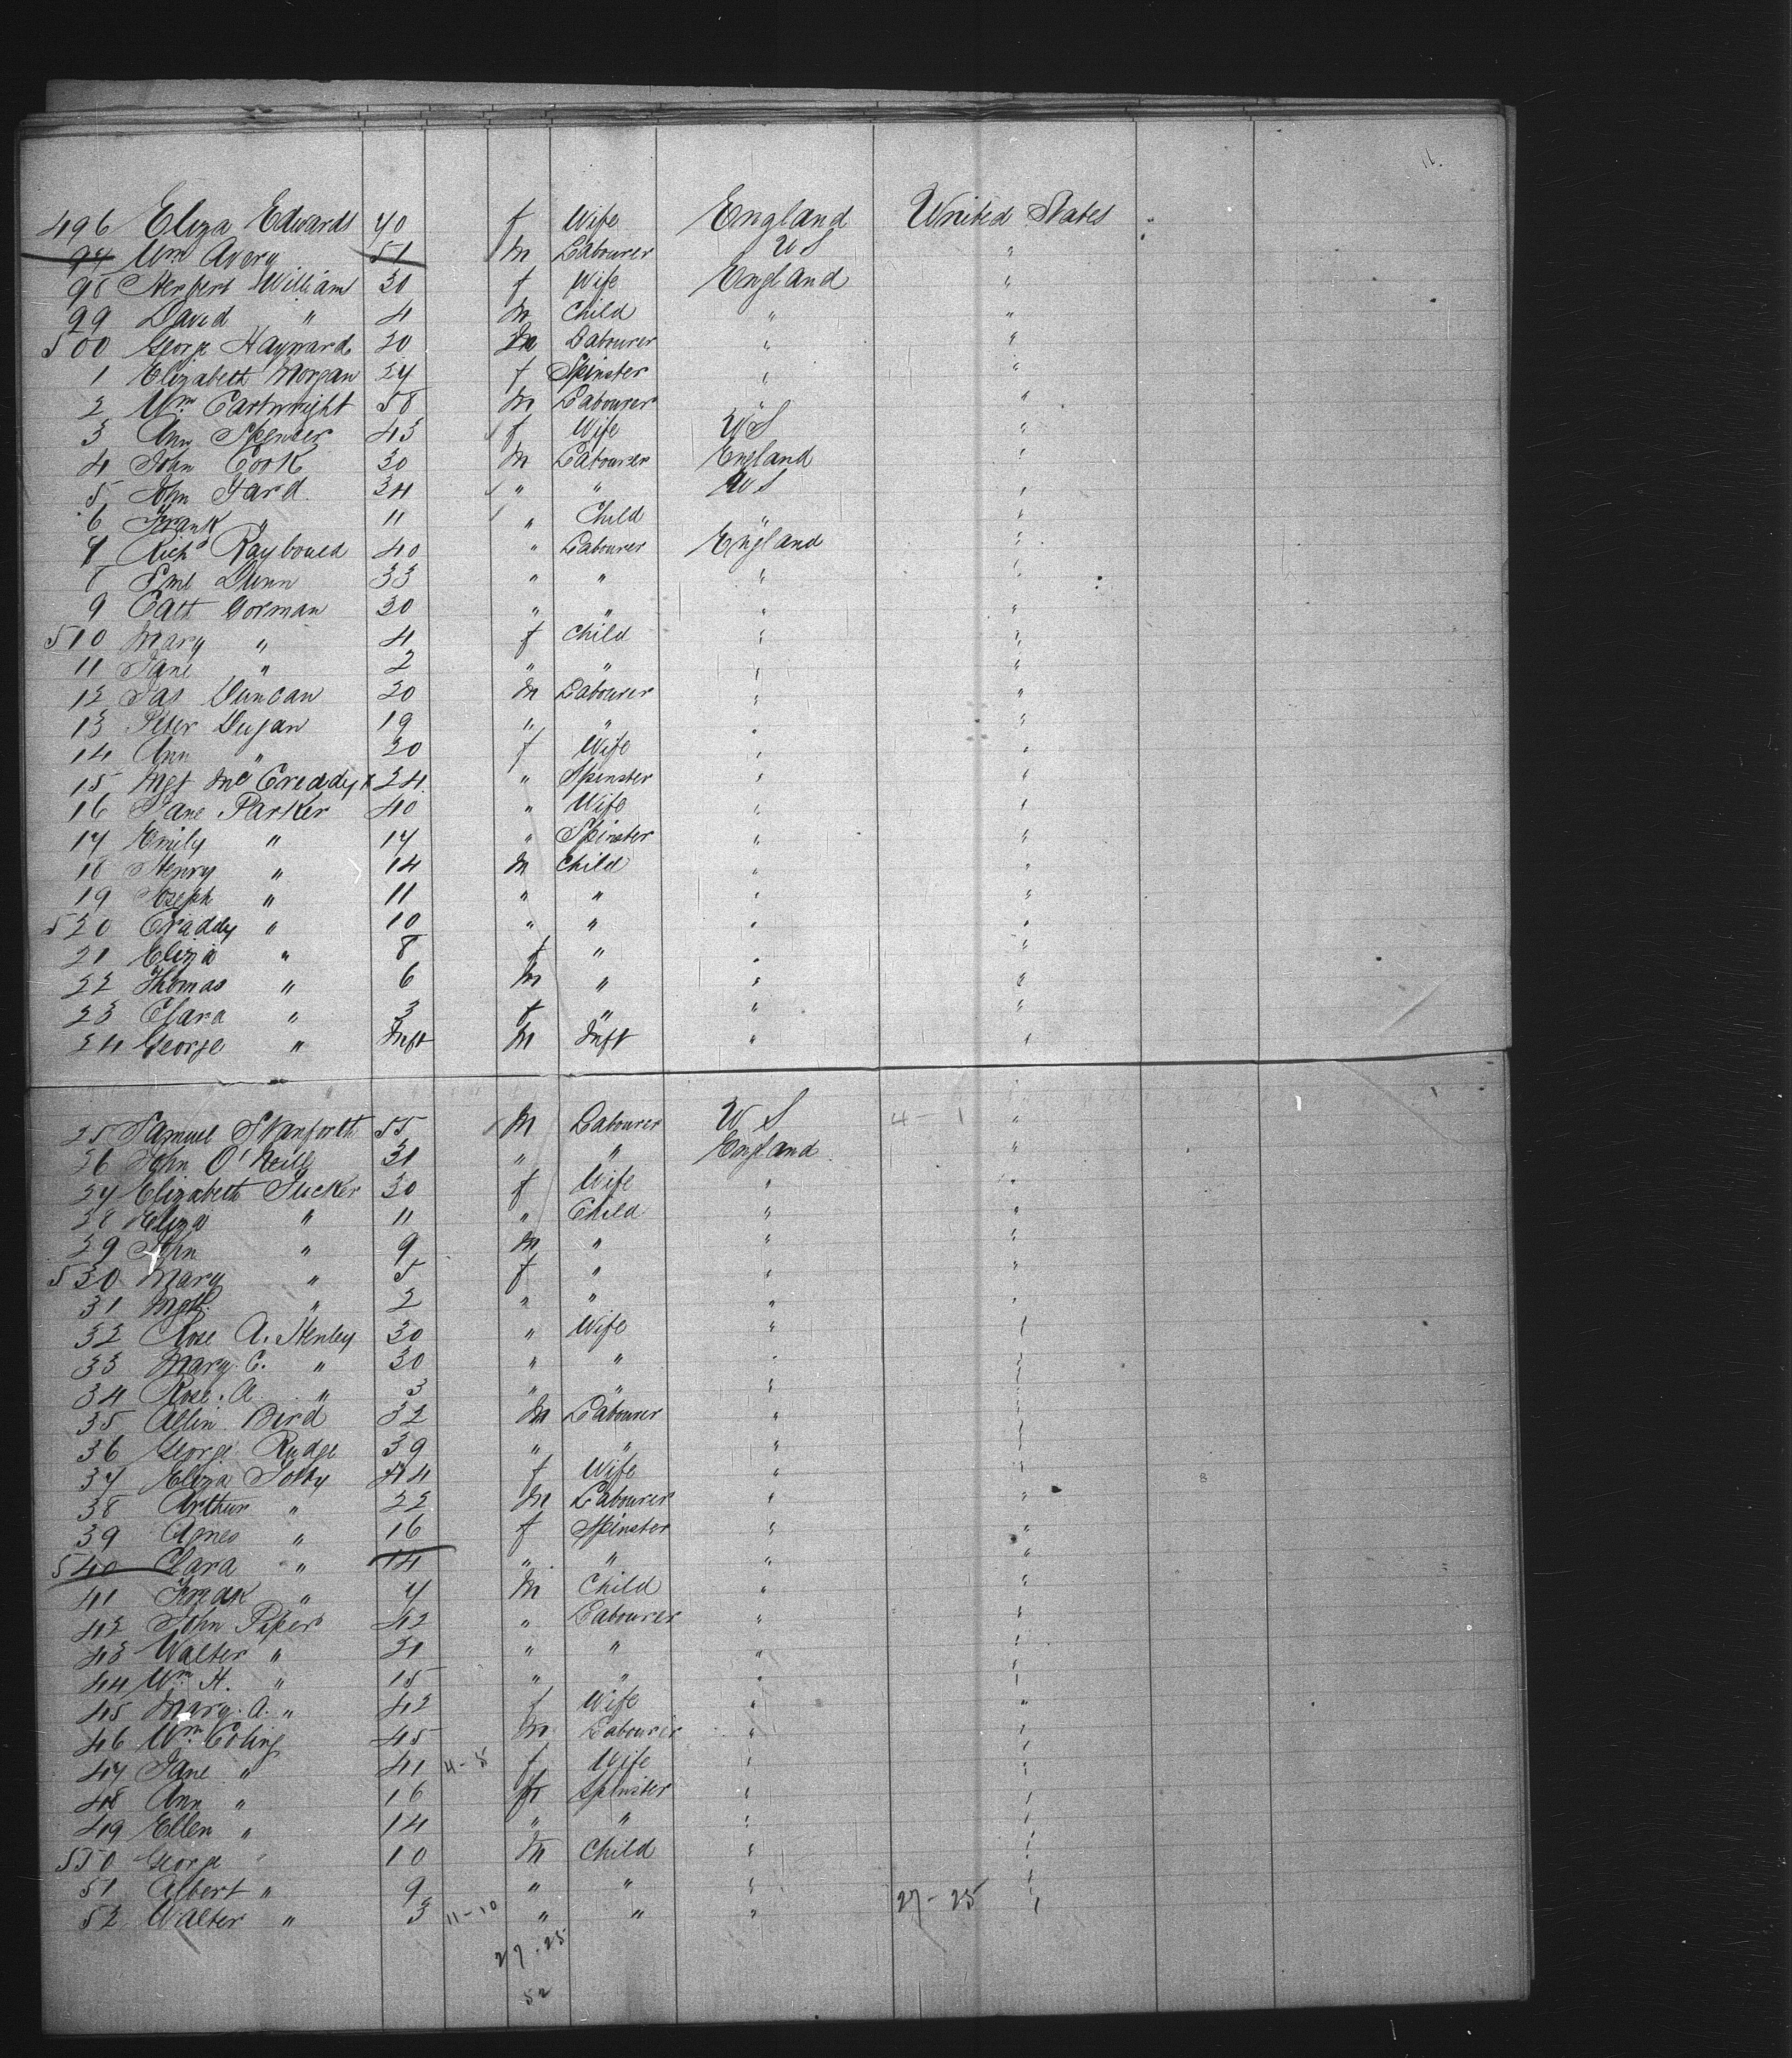 11.
496 Eliza Edwards 40 f Wife England United States
97 Wm Avery 51 m Labourer U S "
98 Herbert William 30 f Wife England "
99 David " 4 m Child " "
500 George Hayward 20 m Labourer " "
1 Elizabeth Morgan 24 f Spinster " "
2 Wm Cartwright 58 m Labourer " "
3 Ann Spencer 43 f Wife U S "
4 John Cook 30 m Labourer England "
5 John Fard 34 " " U S "
6 Frank " 11 " Child " "
7 Richd Raybould 40 " Labourer England "
8 Dunn 33 " " " "
9 Cath Gorman 30 " " " "
510 Mary " 4 f Child " "
11 Jane " 2 " " " "
12 Jas Duncan 20 m Labourer " "
13 Peter Dugan 19 " " " "
14 Ann " 20 f Wife " "
15 Mgt McCreddy 24 " Spinster " "
16 Jane Parker 40 " Wife " "
17 Emily " 17 " Spinster " "
18 Henry " 14 m Child " "
19 Joseph " 11 " " " "
520 Craddy " 10 " " " "
21 Eliza " 8 f " " "
22 Thomas " 6 m " " "
23 Clara " 3 f " " "
24 George " Inft m Inft " "
25 Samuel Stanforth 55 m Labourer U S 4-1 "
26 John O'Neill 31 " " England "
27 Elizabeth Tucker 30 f Wife " "
28 Eliza " 11 " Child " "
29 John " 9 m " " "
530 Mary " 5 f " " "
31 " 2 " " " "
32 Rose A. Henley 30 " Wife " "
33 Mary C. " 30 " " " "
34 Rose. A " 3 " " " "
35 Allin Bird 32 m Labourer " "
36 George Rudge 39 " " " "
37 Eliza 44 f Wife " "
38 Arthur " 22 m Labourer " "
39 Agnes " 16 f Spinster " "
540 Clara " 14 " " " "
41 Frank " 7 m Child " "
42 John Piper 42 " Labourer " "
43 Walter " 21 " " " "
44 Wm H. " 15 " " " "
45 Mary. A. " 42 f Wife " "
46 Wm Coling 45 m Labourer " "
47 Jane " 41 11-5 f Wife " "
48 Ann " 16 f Spinster " "
49 Ellen " 14 " " " "
550 George " 10 m Child " "
51 Albert " 9 " " " "
52 Walter " 3 11-10 " " " 27-25 "
27-25
52